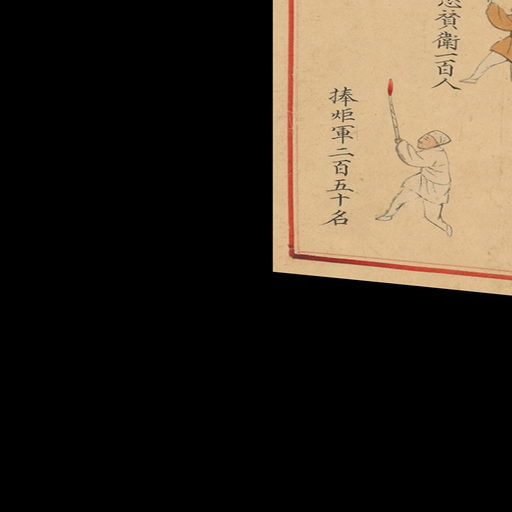 賛衛一百人
捧炬軍二百五十名